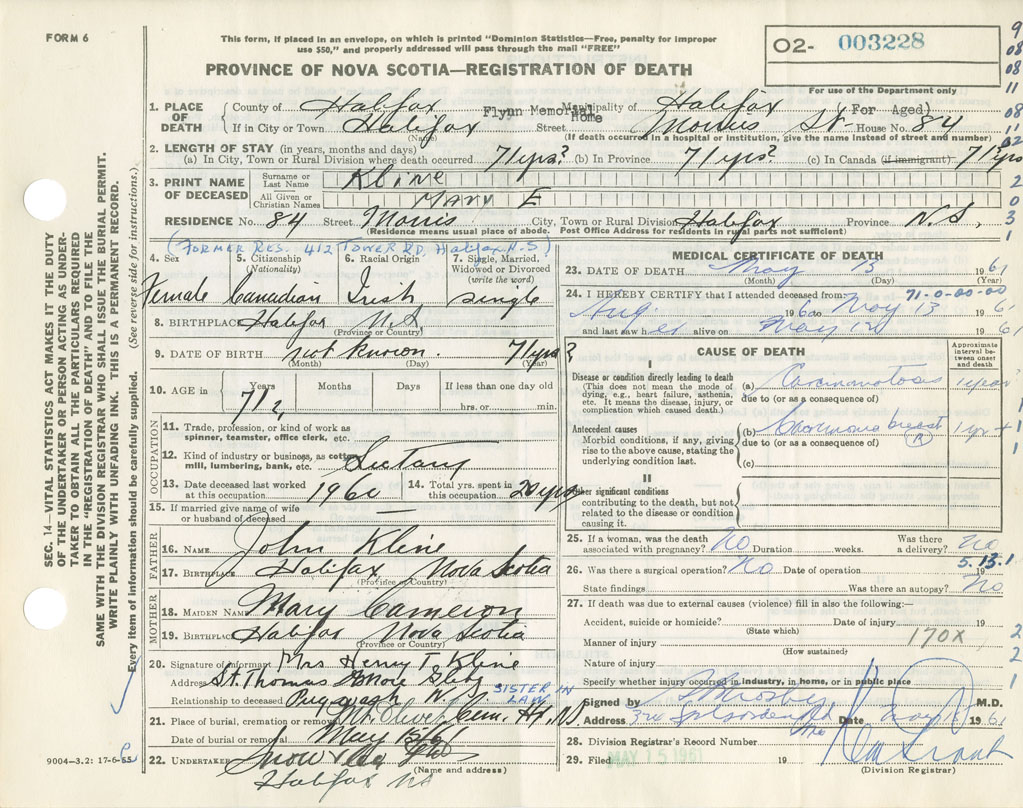 FORM 6
This form, if placed in an envelope, on which is printed "Dominion Statistics—Free, penalty for improper
use $50," and properly addressed will pass through the mail "FREE"
02- 003228
PROVINCE OF NOVA SCOTIA—REGISTRATION OF DEATH
For use of the Department only
1. PLACE OF DEATH
County of Halifax Municipality of Halifax
Flynn Memorial Home (For Aged)
If in City or Town Halifax Street Morris St. House No. 84
(Name) (If death occurred in a hospital or institution, give the name instead of street and number)
2. LENGTH OF STAY (in years, months and days)
(a) In City, Town or Rural Division where death occurred 71 yrs? (b) In Province 71 yrs? (c) In Canada (if immigrant) 71 yrs
3. PRINT NAME OF DECEASED
Surname or Last Name Kline
All Given or Christian Names MARY E
RESIDENCE No. 84 Street Morris City, Town or Rural Division Halifax Province N.S.
(Residence means usual place of abode. Post Office Address for residents in rural parts not sufficient)
(FORMER RES. 412 TOWER RD, Halifax N.S)
4. Sex
Female
5. Citizenship
(Nationality)
Canadian
6. Racial Origin
Irish
7. Single, Married,
Widowed or Divorced
(write the word)
single
8. BIRTHPLACE Halifax N.S.
(Province or Country)
9. DATE OF BIRTH not known. 71 yrs
(Month) (Day) (Year)
10. AGE in Years Months Days If less than one day old
71? hrs. or min.
OCCUPATION
11. Trade, profession, or kind of work as
spinner, teamster, office clerk, etc.
12. Kind of industry or business, as cotton
mill, lumbering, bank, etc.
13. Date deceased last worked
at this occupation 1960
14. Total yrs. spent in
this occupation 20 yrs
15. If married give name of wife
or husband of deceased
FATHER
16. NAME John Kline
17. BIRTHPLACE Halifax Nova Scotia
(Province or Country)
MOTHER
18. MAIDEN NAME Mary Cameron
19. BIRTHPLACE Halifax Nova Scotia
(Province or Country)
20. Signature of informant Mrs Henry T Kline
Address St. Thomas More Glebe
Relationship to deceased Pugwash N.S. SISTER IN LAW
21. Place of burial, cremation or removal Mt. Olivet Cem. Hfx. N.S.
Date of burial or removal May 15/61
22. UNDERTAKER Snow
(Name and address)
Halifax NS
MEDICAL CERTIFICATE OF DEATH
23. DATE OF DEATH May 13 1961
(Month) (Day) (Year)
71-0-00-00
24. I HEREBY CERTIFY that I attended deceased from
Aug. 1960 to May 13 1961
and last saw her alive on May 12 1961
CAUSE OF DEATH
Approximate interval between onset and death
I
Disease or condition directly leading to death
(This does not mean the mode of
dying, e.g., heart failure, asthenia,
etc. It means the disease, injury, or
complication which caused death.)
(a) Carcinomatosis 1 year?
due to (or as a consequence of)
Antecedent causes
Morbid conditions, if any, giving
rise to the above cause, stating the
underlying condition last.
(b) Carcinoma breast (R) 1 yr +
due to (or as a consequence of)
(c)
II
Other significant conditions
contributing to the death, but not
related to the disease or condition
causing it.
25. If a woman, was the death
associated with pregnancy? No Duration weeks. Was there
a delivery? no
5.13.1
26. Was there a surgical operation? No Date of operation 19
State findings Was there an autopsy? No
27. If death was due to external causes (violence) fill in also the following:—
Accident, suicide or homicide? Date of injury 19
(State which)
Manner of injury 170X
(How sustained)
Nature of injury
Specify whether injury occurred in industry, in home, or in public place
Signed by M.D.
Address Date May 1961
28. Division Registrar's Record Number
29. Filed MAY 15 1961 19
(Division Registrar)
SEC. 14—VITAL STATISTICS ACT MAKES IT THE DUTY
OF THE UNDERTAKER OR PERSON ACTING AS UNDER-
TAKER TO OBTAIN ALL THE PARTICULARS REQUIRED
IN THE "REGISTRATION OF DEATH" AND TO FILE THE
SAME WITH THE DIVISION REGISTRAR WHO SHALL ISSUE THE BURIAL PERMIT.
WRITE PLAINLY WITH UNFADING INK. THIS IS A PERMANENT RECORD.
Every item of information should be carefully supplied. (See reverse side for instructions.)
9004-3.2: 17-6-55
9
08
08
11
08
11
02
2
0
3
1
1
1
1
2
2
1